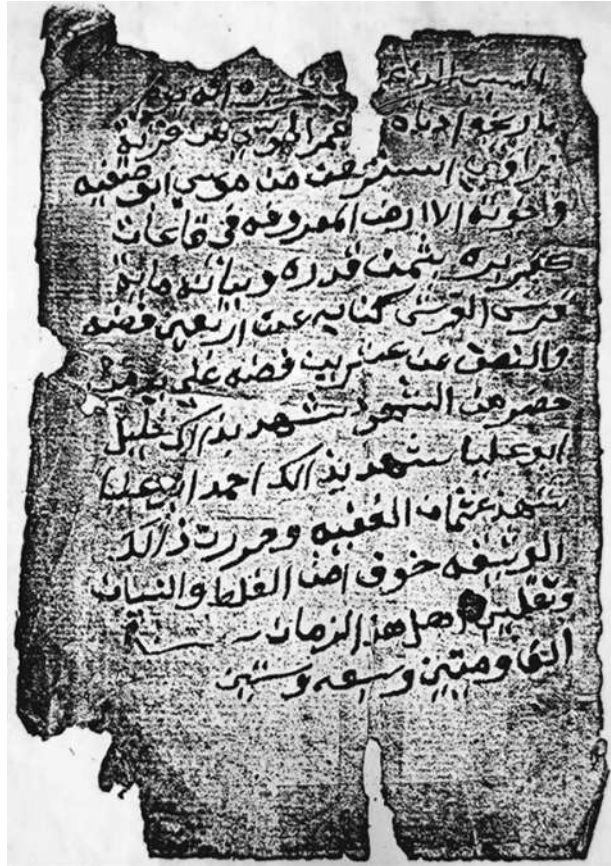 السبب الداعي تحريره انه يوم
بتاريخه ادناه عمر الهوتي من خربة
الستر هن من موسى ابو صفيه
واخوته الاارض المعروفه في قاعات
بثمن قدره وبيانه ماية
قرش القرش كنايه عن اربعين فضه
والنصف عن عشرين فضه على يد من
حضر من الشهود شهد بذالك خليل
ابو عليا شهد بذالك احمد ابو عليا
شهد عثمان الفقيه وحررت ذالك
الوثيقه خوف امن الغلط والنسيان
اهل هذ الزمان
الف ومتين وسبعه وستين